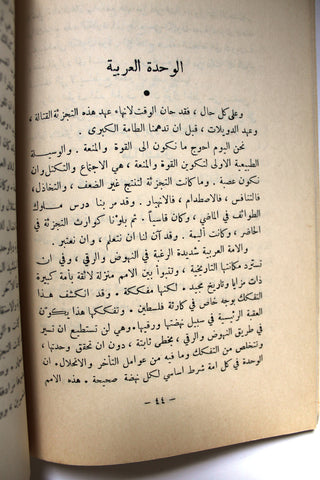 الوحدة العربية
وعلى كل حال ، فقد حان الوقت لانهاء عهد هذه التجزئة القتالة ،
وعهد الدويلات ، قبل ان تدهمنا الطامة الكبرى .
نحن اليوم احوج ما نكون الى القوة والمنعة . والوسيلة
الطبيعية الاولى لتكوين القوة والمنعة ، هي الاجتماع والتكتل وان
نكون عصبة . وما كانت التجزئة لتنتج غير الضعف ، والتخاذل ،
فالتنافس ، فالاصطدام ، فالانهيار . وقد مر بنا درس ملوك
الطوائف في الماضي ، وكان قاسياً . ثم بلونا كوارث التجزئة في
الحاضر ، وكانت أليمة . وقد آن لنا ان نتعلم ، وان نعتبر .
والامة العربية شديدة الرغبة في النهوض والرقي ، وفي ان
تسترد مكانتها التاريخية ، وتتبوأ بين الامم منزلة لائقة بأمة كبيرة
ذات مزايا وتاريخ مجيد . لكنها مفككة . وقد انكشف هذا
التفكك بوجه خاص في كارثة فلسطين . وتفككها هذا يكوّن
العقبة الرئيسية في سبيل نهضتها ورقيها . وهي لن تستطيع ان تسير
في طريق النهوض والرقي ، بخطى ثابتة ، دون ان تحقق وحدتها ،
وتتخلص من التفكك وما فيه من عوامل التأخر والانحلال . ان
الوحدة في كل امة شرط اساسي لكل نهضة صحيحة . هذه الامم
– ٤٤ –